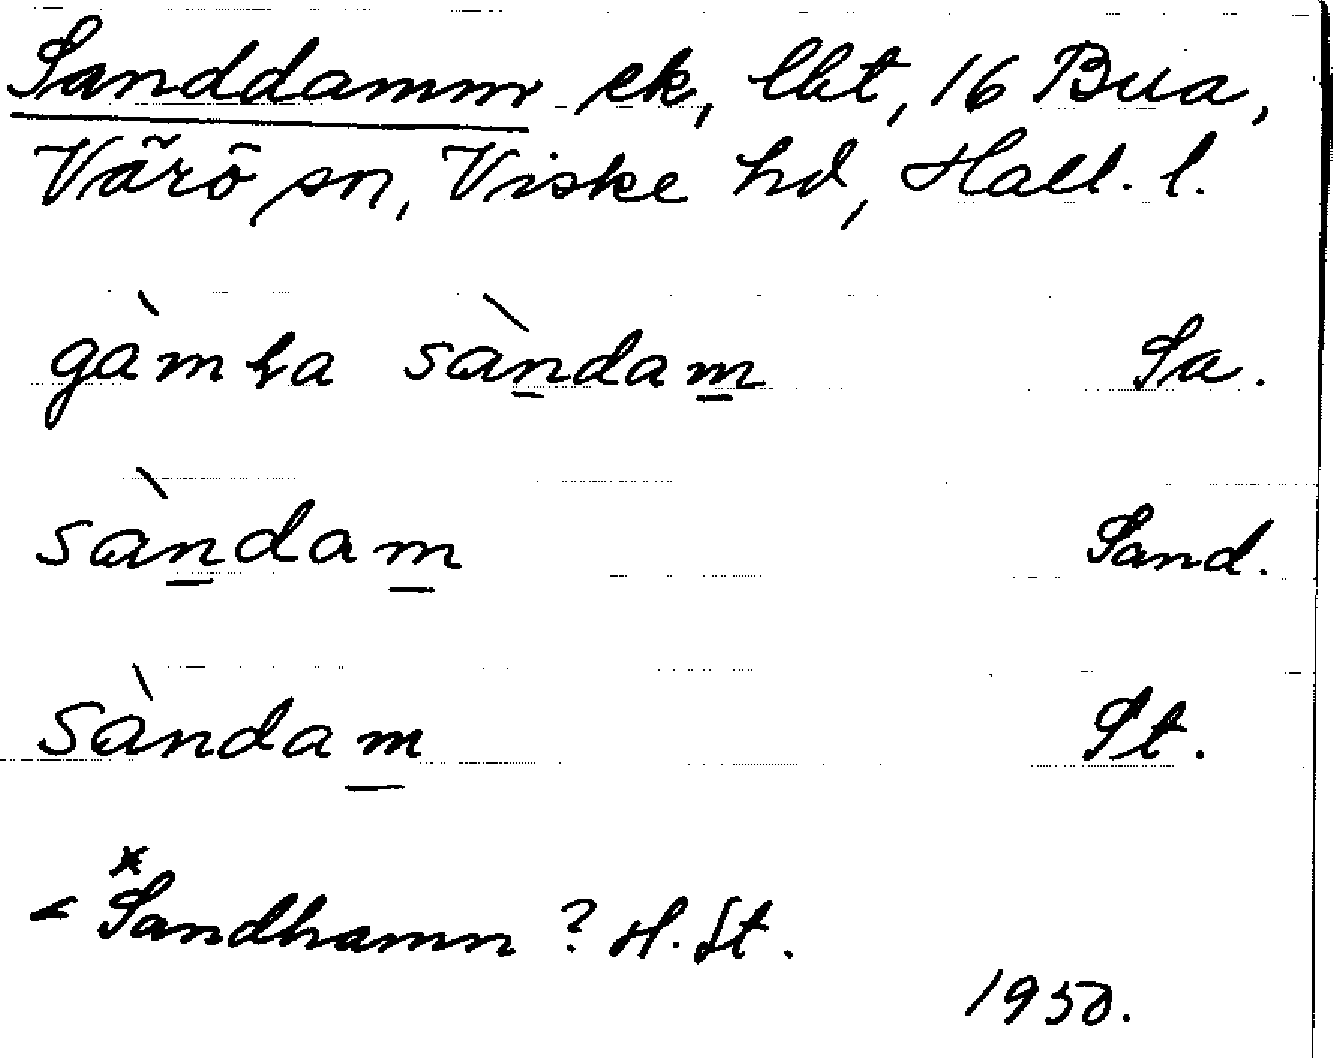 Sanddamm ek, lht, 16 Bua,
Värö sn, Viske hd, Hall. l.
gàmla sàndam Sa.
sàndam Sand.
sàndam St.
< *Sandhamn ? H. St.
1950.